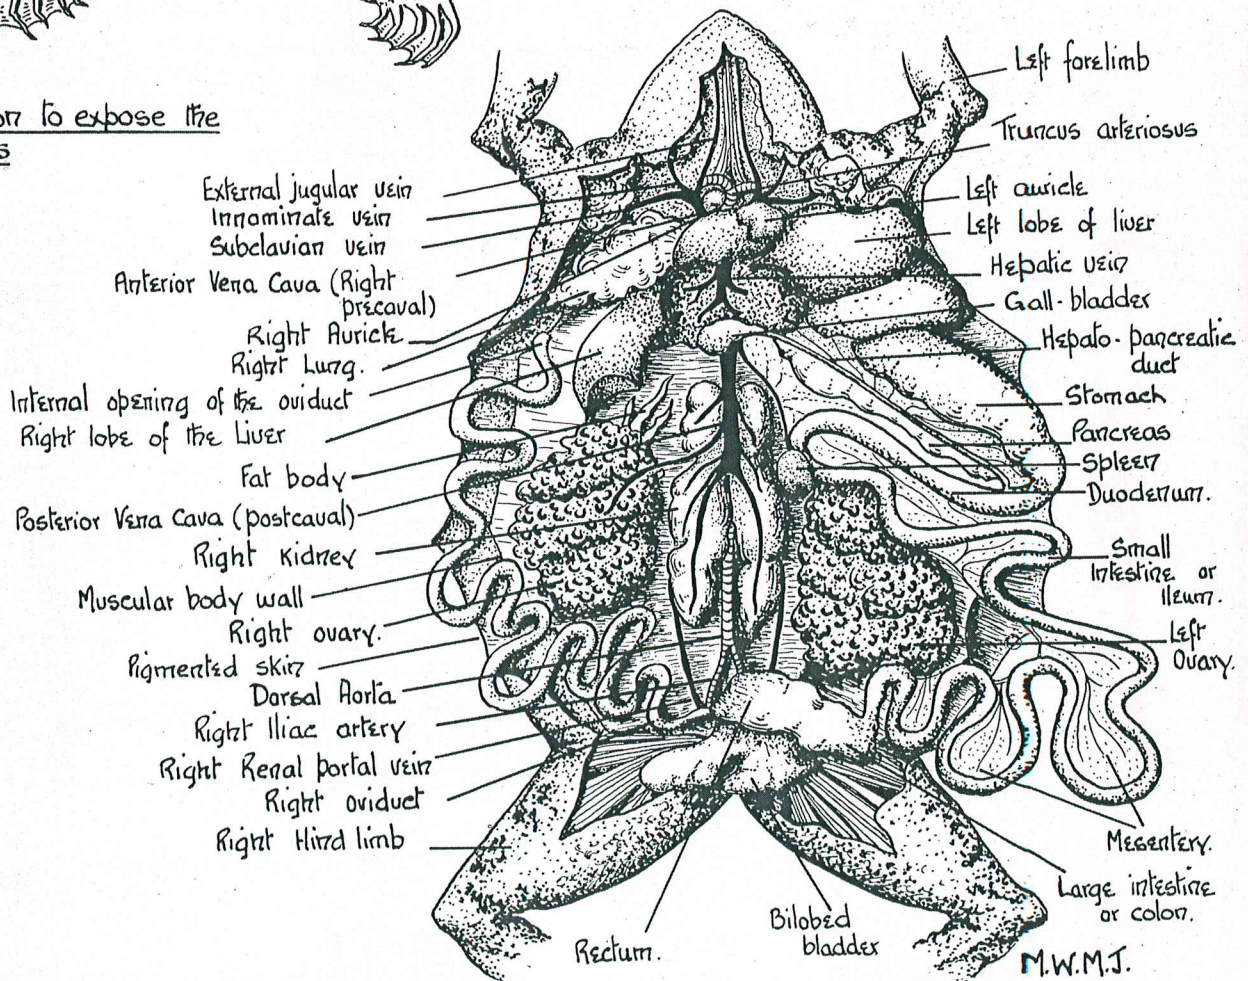 on to expose the
s
External jugular vein
Innominate vein
Subclavian vein
Anterior Vena Cava (Right
precaval)
Right Aurick
Right Lung.
Internal opening of the oviduct
Right lobe of the Liver
Fat body
Posterior Vena Cava (postcaval)
Right kidney
Muscular body wall
Right ovary.
Pigmented skin
Dorsal Aorta
Right Iliac artery
Right Renal portal vein
Right oviduct
Right Hind limb
Rectum.
Bilobed
bladder
Left forelimb
Truncus arteriosus
Left auricle
Left lobe of liver
Hepatic vein
Gall-bladder
Hepato-pancreatic
duct
Stomach
Pancreas
Spleen
Duodenum.
Small
Intestine or
Ileum.
Left
Ovary.
Mesentery.
Large intestine
or colon.
M.W.M.J.